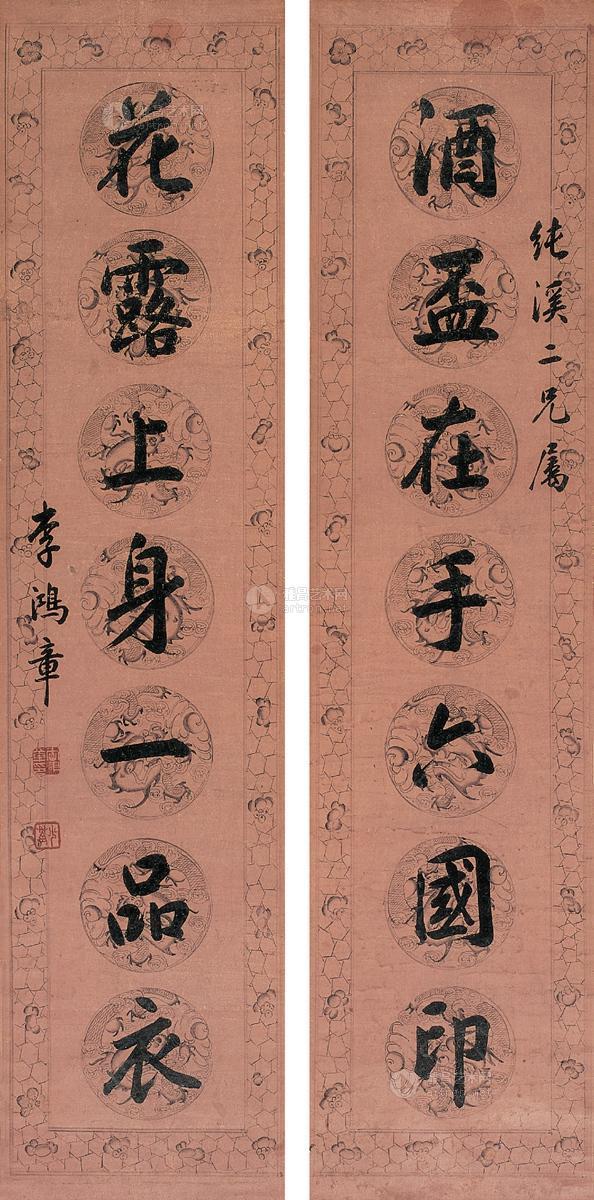 酒盃在手六國印
純溪二兄屬
花露上身一品衣
李鴻章